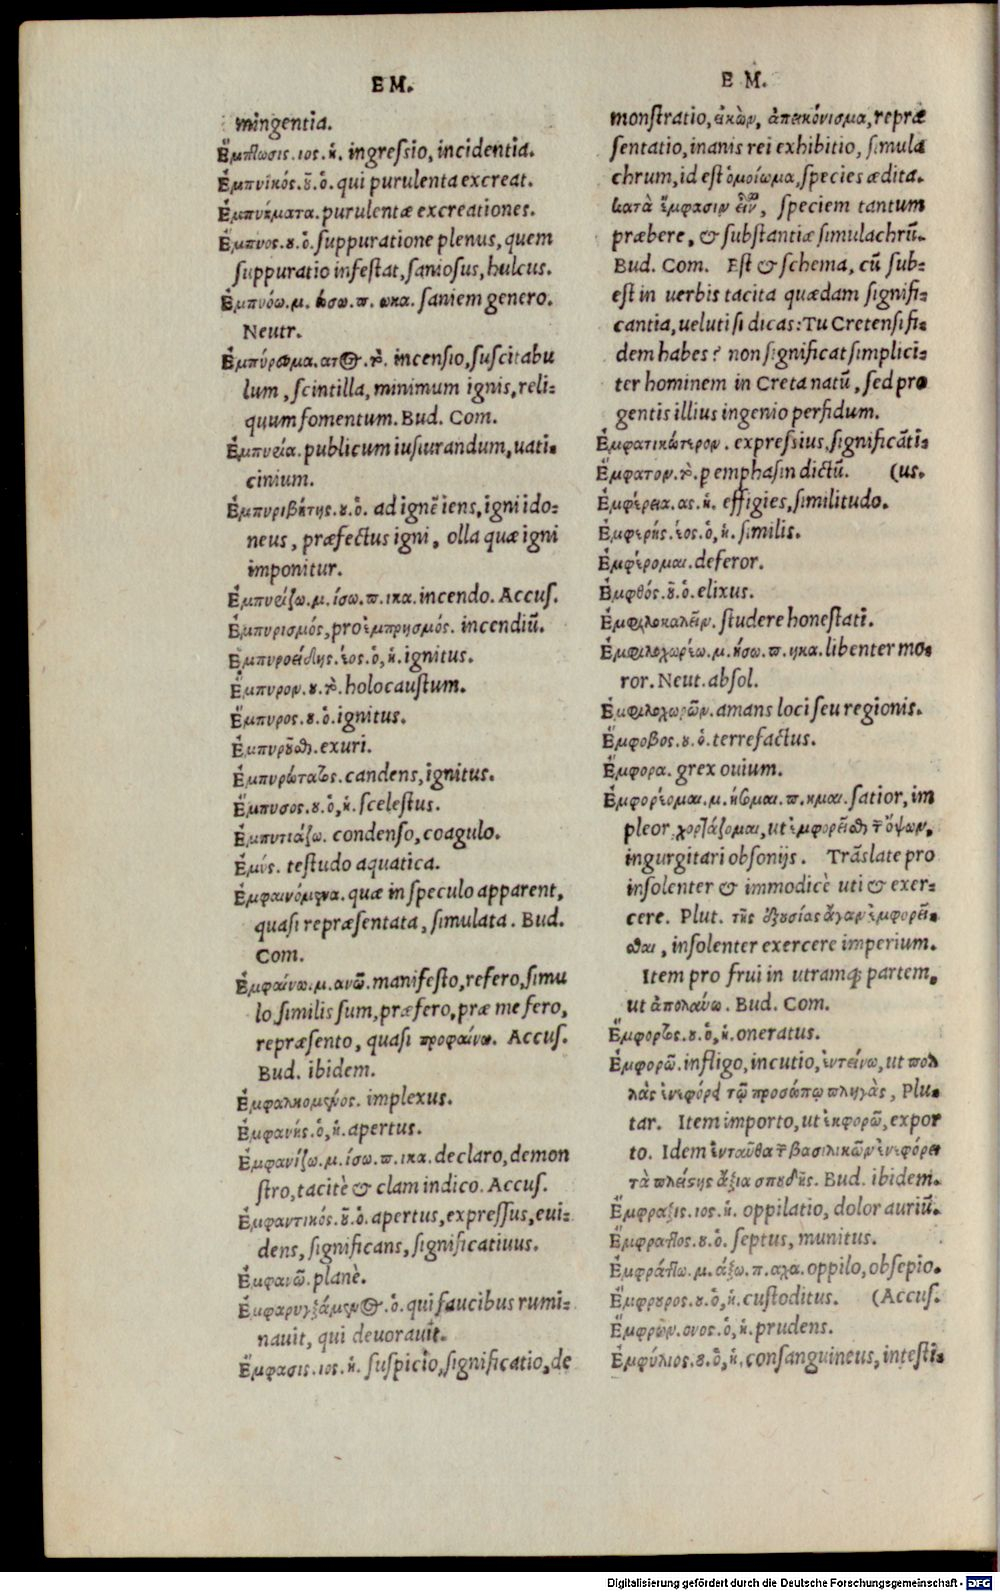 EM.
mingentia.
Ἔμπτωσις.ιος.ἡ. ingressio, incidentia.
Ἐμπυϊκός.οῦ.ὁ. qui purulenta excreat.
Ἐμπυήματα. purulentæ excreationes.
Ἔμπυος.ου.ὁ. suppuratione plenus, quem
suppuratio infestat, saniosus, hulcus.
Ἐμπυόω.μ. ώσω. π. ωκα. saniem genero.
Neutr.
Ἐμπύρευμα.ατος.τὸ. incensio, suscitabu
lum, scintilla, minimum ignis, reli-
quum fomentum. Bud. Com.
Ἐμπυρία. publicum iusiurandum, uati-
cinium.
Ἐμπυριβήτης.ου.ὁ. ad ignē iens, igni ido-
neus, præfectus igni, olla quæ igni
imponitur.
Ἐμπυρίζω.μ.ίσω.π.ικα. incendo. Accus.
Ἐμπυρισμός, pro ἐμπρησμός. incendiū.
Ἐμπυροειδής.έος.ὁ,ἡ. ignitus.
Ἔμπυρον.ου.τὸ. holocaustum.
Ἔμπυρος.ου.ὁ. ignitus.
Ἐμπυροῦσθαι. exuri.
Ἐμπυρώτατος. candens, ignitus.
Ἔμπυσος.ου.ὁ,ἡ. scelestus.
Ἐμπυτιάζω. condenso, coagulo.
Ἐμύς. testudo aquatica.
Ἐμφαινόμενα. quæ in speculo apparent,
quasi repræsentata, simulata. Bud.
Com.
Ἐμφαίνω.μ.ανῶ. manifesto, refero, simu
lo, similis sum, præfero, præ me fero,
repræsento, quasi προφαίνω. Accus.
Bud. ibidem.
Ἐμφαλκομενος. implexus.
Ἐμφανής.ὁ,ἡ. apertus.
Ἐμφανίζω.μ.ίσω.π.ικα. declaro, demon
stro, tacitè & clam indico. Accus.
Ἐμφαντικός.οῦ.ὁ. apertus, expressus, eui-
dens, significans, significatiuus.
Ἐμφανῶ. planè.
Ἐμφαρυγξάμενος.ὁ. qui faucibus rumi-
nauit, qui deuorauit.
Ἔμφασις.ιος.ἡ. suspicio, significatio, de
EM.
monstratio, εἰκὼν, ἀπεικόνισμα, repræ
sentatio, inanis rei exhibitio, simula
chrum, id est ὁμοίωμα, species ædita.
κατὰ ἔμφασιν εἶναι, speciem tantum
præbere, & substantiæ simulachrū.
Bud. Com. Est & schema, cū sub-
est in uerbis tacita quædam signifi-
cantia, ueluti si dicas: Tu Cretensi fi-
dem habes? non significat simplici-
ter hominem in Creta natū, sed pro
gentis illius ingenio perfidum.
Ἐμφατικώτερον. expressius, significāti-
Ἔμφατον.τὸ. p emphasin dictū. (us.
Ἐμφέρεια.ας.ἡ. effigies, similitudo.
Ἐμφερής.έος.ὁ,ἡ. similis.
Ἐμφέρομαι. deferor.
Ἐμφθός.οῦ.ὁ. elixus.
Ἐμφιλοκαλεῖν. studere honestati.
Ἐμφιλοχωρέω.μ.ήσω.π.ηκα. libenter mo-
ror. Neut. absol.
Ἐμφιλοχωρῶν. amans loci seu regionis.
Ἔμφοβος.ου.ὁ. terrefactus.
Ἔμφορα. grex ouium.
Ἐμφορέομαι.μ.ήσομαι.π.ημαι. satior, im
pleor, χορτάζομαι, ut ἐμφορεῖσθαι τῶν ὄψων,
ingurgitari obsonijs. Trāslate pro
insolenter & immodicè uti & exer-
cere. Plut. τῆς ἐξουσίας ἄγαν ἐμφορεῖ-
σθαι, insolenter exercere imperium.
Item pro frui in utramq; partem,
ut ἀπολαύω. Bud. Com.
Ἔμφορτος.ου.ὁ,ἡ. oneratus.
Ἐμφορῶ. infligo, incutio, ἐντείνω, ut πολ
λὰς ἐνεφόρει τῷ προσώπῳ πληγὰς, Plu-
tar. Item importo, ut ἐκφορῶ, expor
to. Idem ἐνταῦθα τῶν βασιλικῶν ἐνεφόρει
τὰ πλείστης ἄξια σπουδῆς. Bud. ibidem.
Ἔμφραξις.ιος.ἡ. oppilatio, dolor auriū.
Ἔμφρακτος.ου.ὁ. septus, munitus.
Ἐμφράττω.μ.άξω.π.αχα. oppilo, obsepio.
Ἔμφρουρος.ου.ὁ,ἡ. custoditus. (Accus.
Ἔμφρων.ονος.ὁ,ἡ. prudens.
Ἐμφύλιος.ου.ὁ,ἡ. consanguineus, intesti-
Digitalisierung gefördert durch die Deutsche Forschungsgemeinschaft - DFG